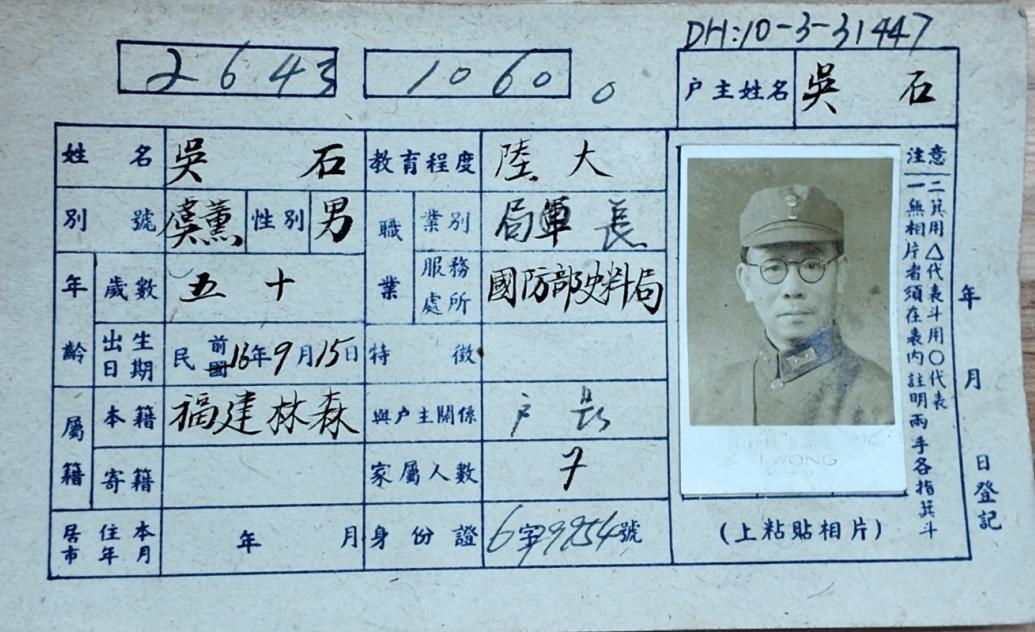 DH:10-3-31447
2643 1060 0
户主姓名 吳石
姓名 吳石 教育程度 陸大
別號 虞薰 性別 男 職業 業別 局軍長
年齡 歲數 五十 服務處所 國防部史料局
出生日期 民前國16年9月15日 特徵
屬籍 本籍 福建林森 與户主關係 户長
寄籍 家屬人數 7
居住本市年月 年 月 身份證 6字9254號
注意
一無相片者須在表內註明兩手各指箕斗
二箕用△代表斗用○代表
年 月 日登記
I WONG
(上粘貼相片)